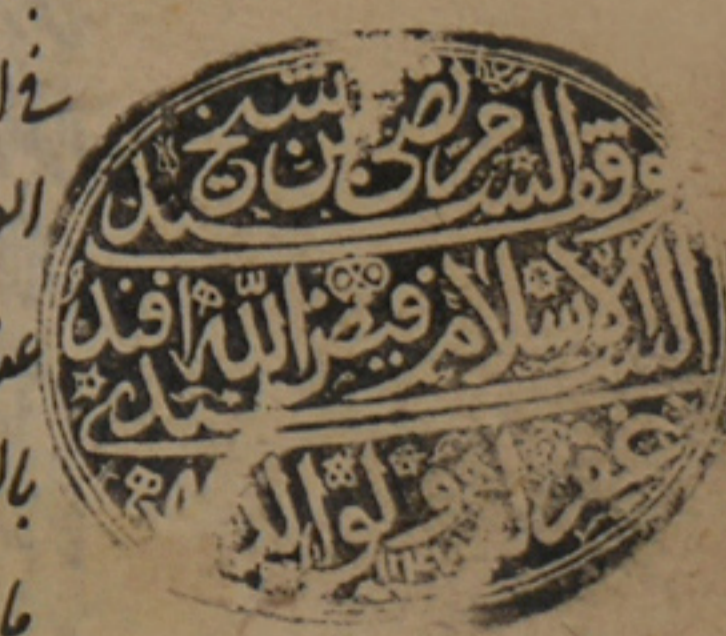 وقف السيد مرتضى بن شيخ
الاسلام السيد فيض الله افندى
غفر له ولوالديه
فى ا